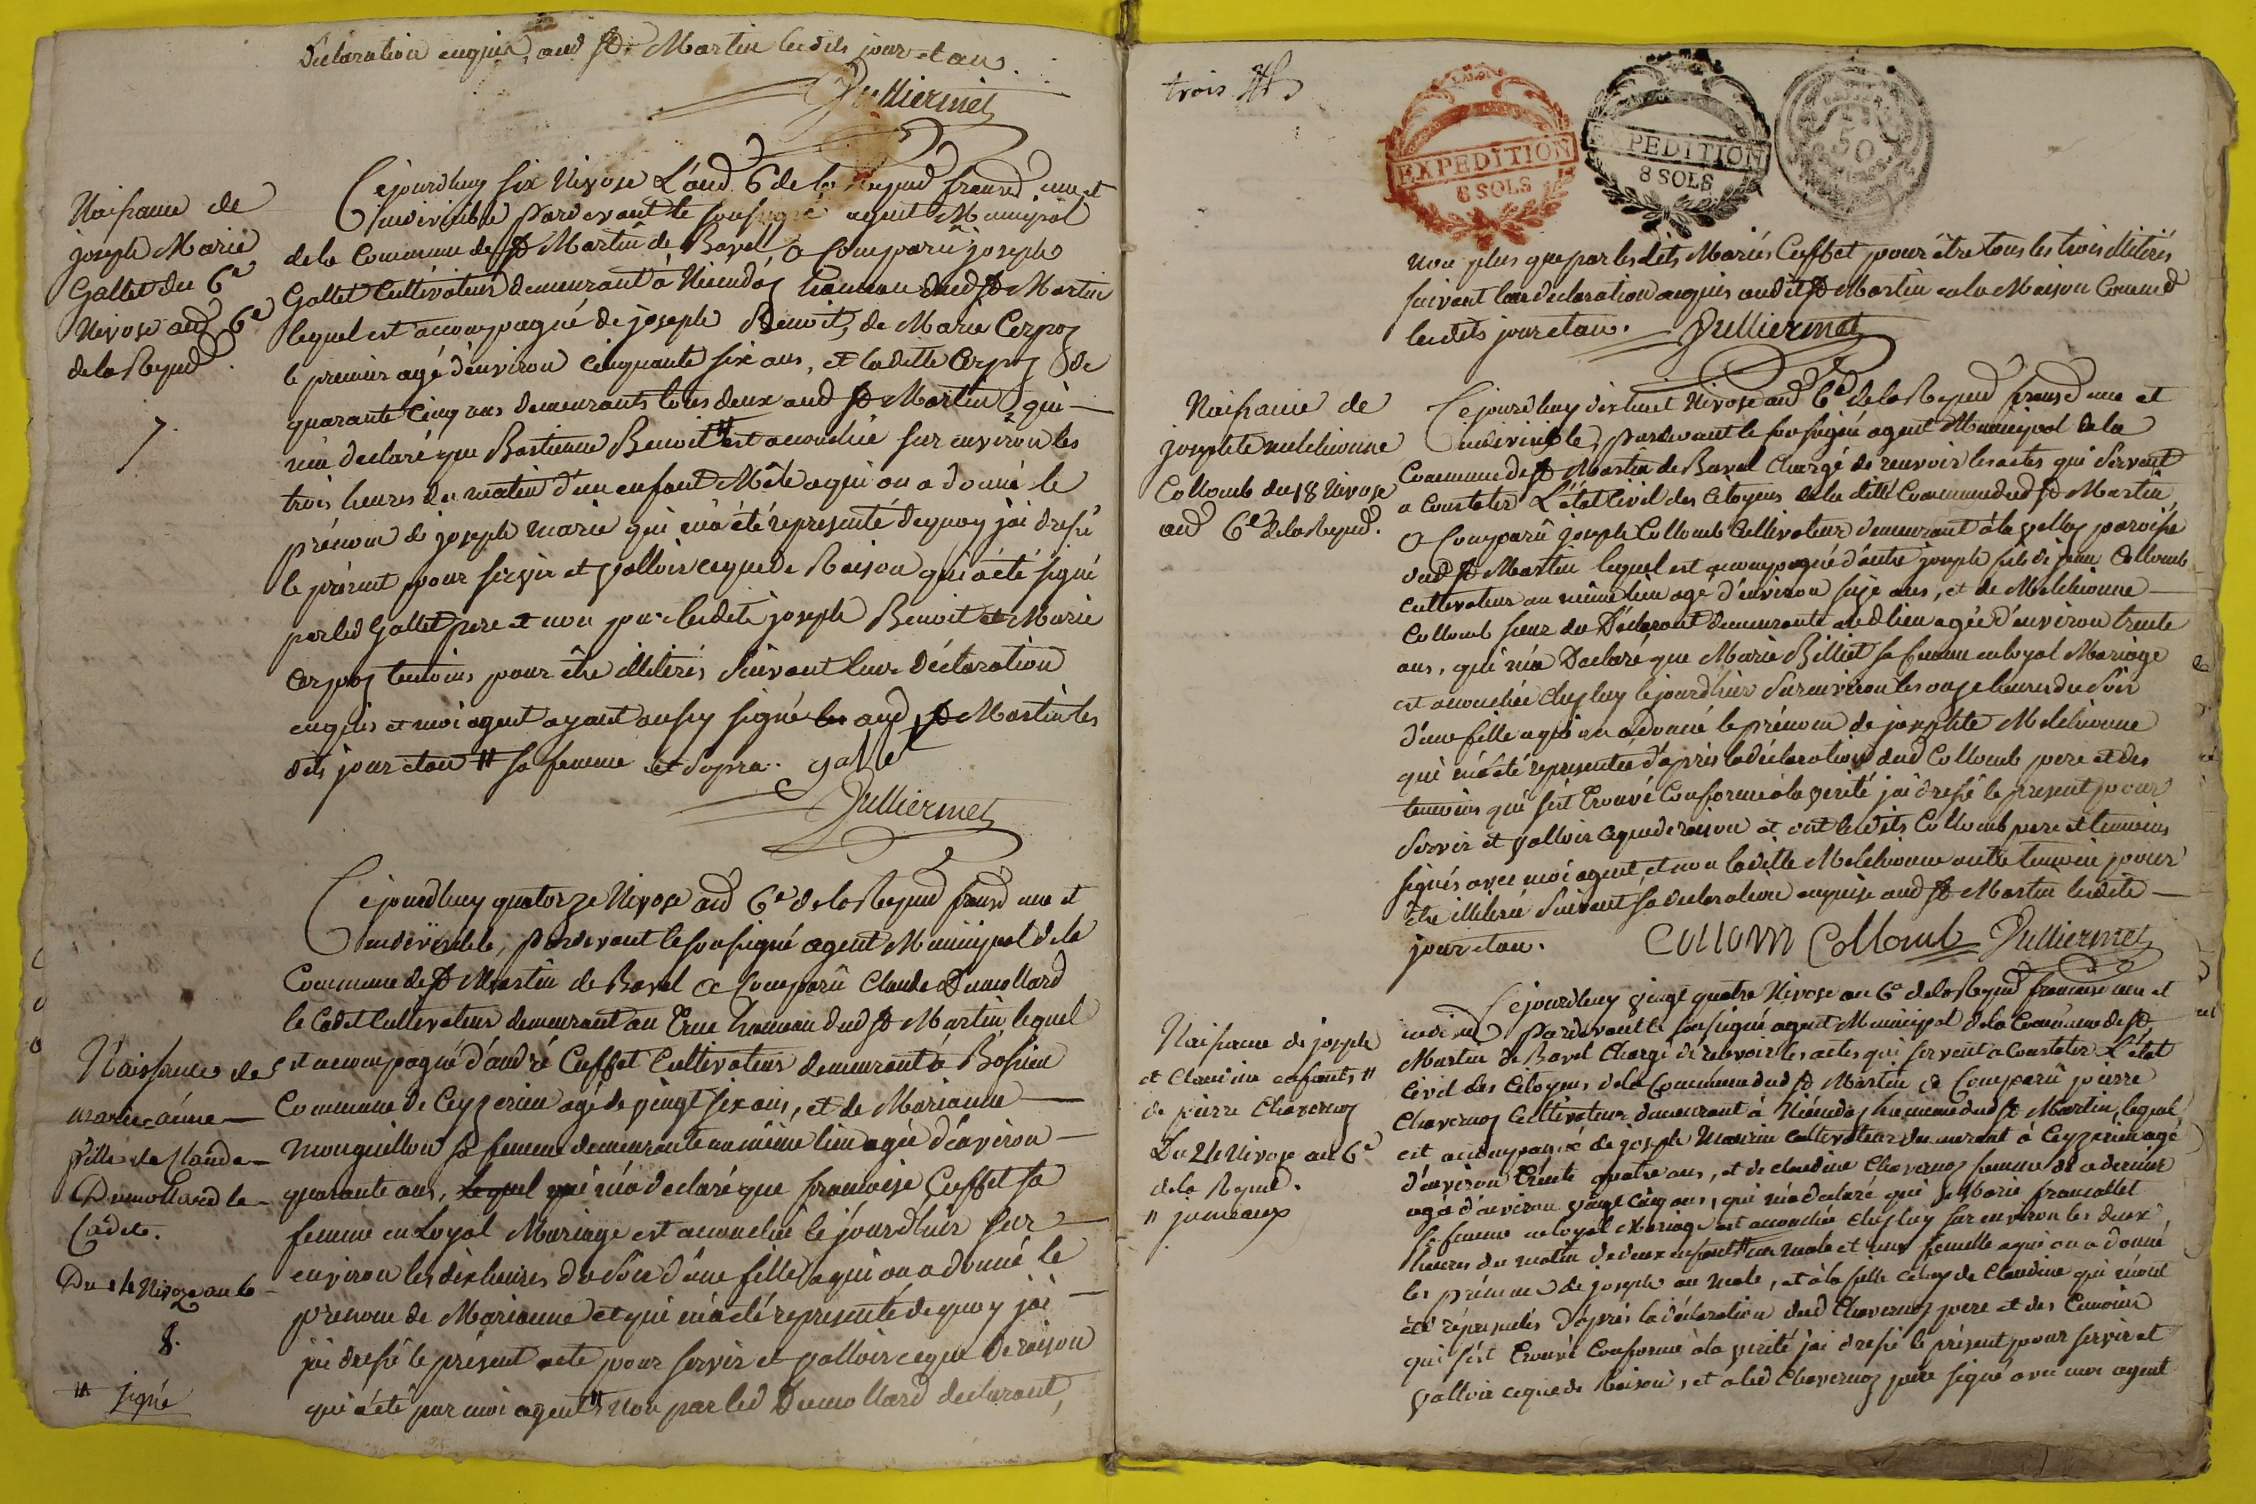 Declaration enquis aud St. Martin lesdits jour et an.
Julliermet
Naissance de
joseph Marie
Gallet du 6e
Nivose and 6e
de la Repud.
7.
Cejourdhuy six Nivose L'and 6 de la Repud fransd une et
indivisible pardevant le soussigné agent Municipal
dela Commune de St Martin de Bavel a Comparû joseph
Gallet Cultivateur demeurant à hameau dud St Martin
lequel est accompagné de joseph Benoit, de Marie Cerpoz
le premier agé d'environ cinquante six ans, et laditte Cerpoz de
quarante Cinq ans demeurants tous deux aud St Martin, qui
m'a declaré que Bastienne Benoit # est accouchée sur environ les
trois heures du matin d'un enfant Mâle a qui on a donné le
prénom de joseph marie qui m'a été representé dequoy jai dressé
le présent pour servir et valloir ceque de Raison qui a été signé
par led Gallet pere et non par lesdits joseph Benoit et Marie
Cerpoz temoins pour être illiterés suivant leur déclaration
enquis et moi agent ayant aussy signé aud St Martin les
dits jour et an # sa femme et Sopra. galle
Julliermet
Naissance de
marie-anne
fille de Claude
Dumollard le
Cadet.
Du 14 Nivoze an 6
8.
" signé
Cejourdhuy quatorze Nivose and 6e de la Repud fransd une et
indivisible, pardevant le soussigné agent Municipal dela
Commune de St Martin de Bavel a Comparû Claude Dumollard
le Cadet Cultivateur demeurant au hameau dud St Martin, lequel
est accompagné d'andré Cuffet Cultivateur demeurant à
Commune de Ceyzerieu agé de vingt six ans, et de Marianne
sa femme demeurante au même lieu agée d'environ
quarante ans, lequel qui m'a declaré que françoise Cuffet sa
femme en Loyal Mariage est accouchée le jourdhier sur
environ les dix heures du Soir d'une fille a qui on a donné le
prenom de Marianne et qui m'a été representé dequoy jai
jai dressé le présent acte pour servir et valloir ceque de raison
qui a été par moi agent " non par led Dumollard declarant,
trois
EXPEDITION
8 SOLS
EXPEDITION
8 SOLS
50
non plus que par lesdits Mariés Cuffet pour être tous les trois illiterés
suivant leur declaration enquis audit St Martin en la Maison Commd
lesdits jour et an. Julliermet
Naissance de
josephte melchionne
Collomb du 18 Nivose
and 6e de la Repud.
Cejourdhuy dixhuit Nivose and 6e de la Repud fransd une et
indivisible, pardevant le soussigné agent Municipal de la
Commune de St Martin de Bavel Chargé de recevoir les actes qui servent
a Constater L'état Civil des Citoyens de la ditte Commune dud St Martin
a Comparû joseph Collomb Cultivateur demeurant à la paroisse
dud St Martin lequel est accompagné d'autre joseph fils de jean Collomb
cultivateur au même lieu agé d'environ seize ans, et de Melchionne
Collomb sœur du Déclarant demeurante aud lieu agée d'environ trente
ans, qui m'a Declaré que Marie Billiet sa femme en loyal Mariage
est accouchée chez luy le jourdhier sur environ les onze heures du Soir
d'une fille a qui on a donné le prénom de josephte Melchionne
qui m'a été représentée d'après la déclaration dud Collomb pere et des
temoins qui s'est trouvé Conforme à la vérité jai dressé le present pour
servir et valloir ceque de raison et ont lesdits Collomb pere et temoins
signés avec moi agent et non laditte Melchionne autre temoin pour
être illiterée suivant sa declaration enquise aud St Martin lesdits
jour et an. COLLOMB Collomb Julliermet
Naissance de joseph
et Claudine enfants "
de pierre Chavernoz
Du 24 Nivose an 6e
de la Repud.
" jumeaux
Cejourdhuy vingt quatre Nivose an 6e de la Repud francaise une et
indivd pardevant le soussigné agent Municipal dela Commune de St
Martin de Bavel Chargé de recevoir les actes qui servent a Constater L'état
Civil des Citoyens dela Commune dud St Martin a Comparû pierre
Chavernoz Cultivateur demeurant à hameau dud St Martin, lequel
est accompagné de joseph cultivateur demeurant à Ceyzerieu agé
d'environ trente quatre ans, et de claudine Chavernoz femme de ce dernier
agée d'environ vingt cinq ans, qui m'a declaré que Marie francallet
sa femme en loyal Mariage est accouchée chez luy sur environ les deux
heures du matin de deux enfants " un male et une femelle a qui on a donné
les prénoms de joseph au male, et à la fille celuy de Claudine qui m'ont
été représentés d'après la déclaration dud Chavernoz pere et des temoins
qui s'est trouvé Conforme à la vérité jai dressé le présent pour servir et
valloir ceque de Raison, et a led Chavernoz père signé avec moi agent